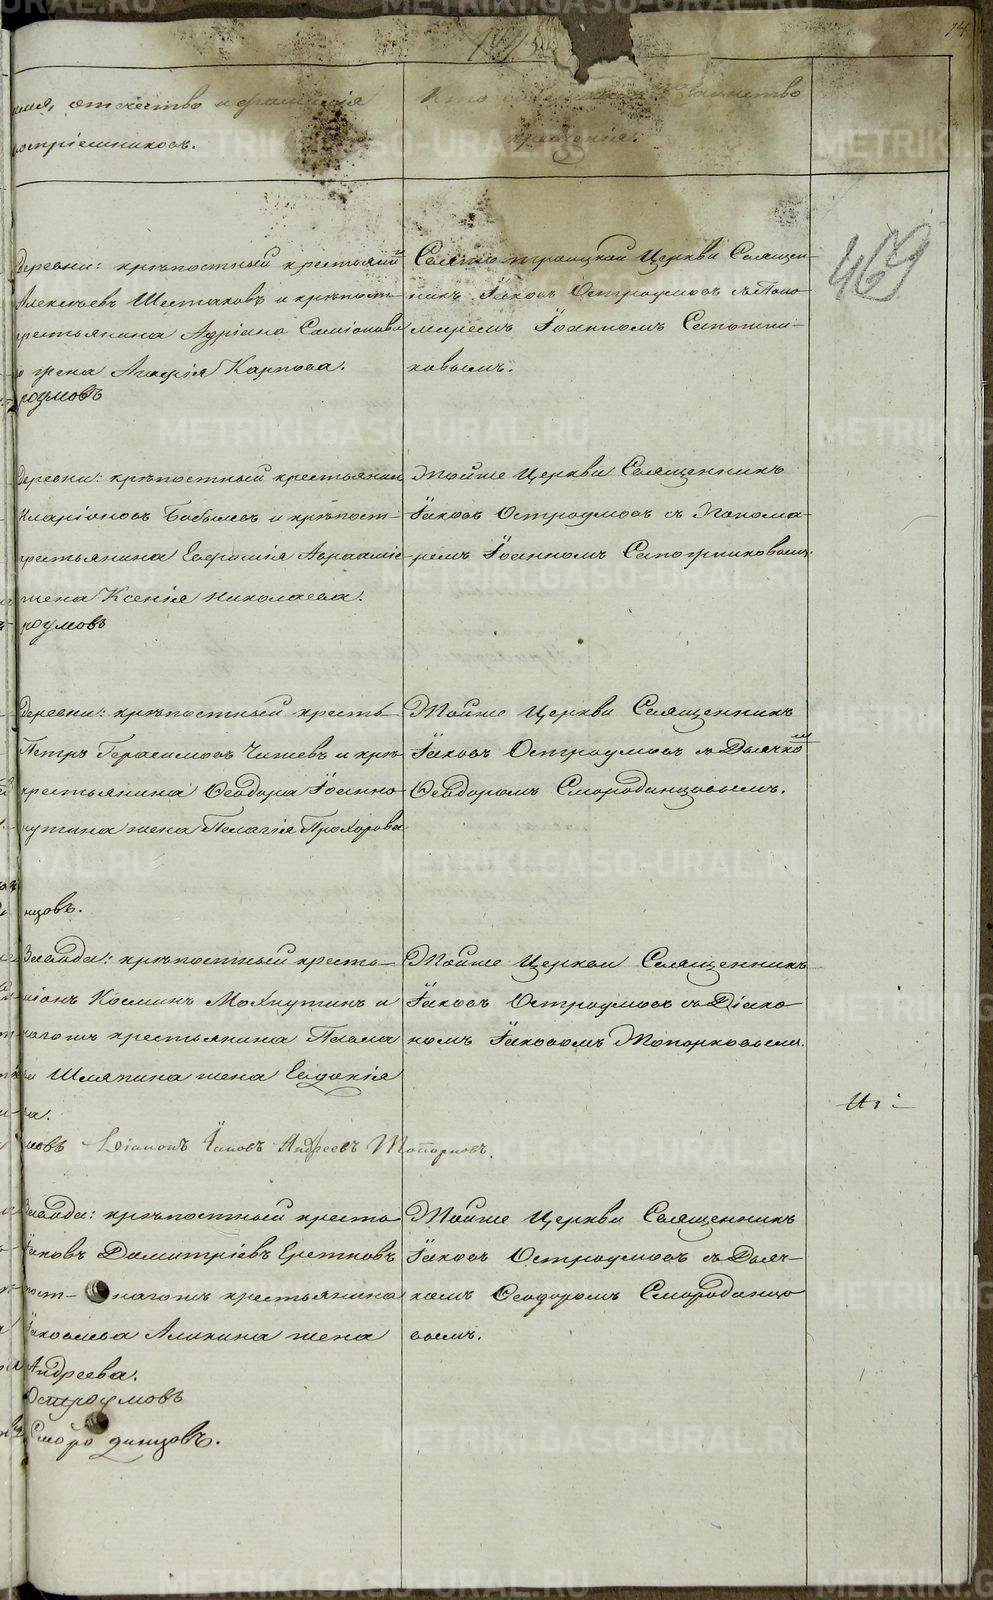 14
имя, отечество и фамилія
воспріемниковъ.
Кто совершалъ таинство
крещенія.
469
деревни: крѣпостный крестьянинъ
Алексѣевъ Шестаковъ и крѣпост-
крестьянина Адріана Симіонова
жена Агафія Карпова.
роумовъ
Святотроицкой Церкви Священ-
никъ Іаковъ Остроумовъ съ Поно-
маремъ Іоанномъ Сапожни-
ковымъ.
деревни: крѣпостный крестьянин
Иларіоновъ Бобылевъ и крѣпост-
крестьянина Евфимія Аврааміе-
жена Ксенія Николаева.
роумовъ
Тойже Церкви Священникъ
Іаковъ Остроумовъ съ Понома-
ремъ Іоанномъ Сапожниковымъ.
деревни: крѣпостный кресть-
Петръ Герасимовъ и крѣ-
крестьянина Ѳеодора Іоанно-
жена Пелагія Прохорова
нцовъ.
Тойже Церкви Священникъ
Іаковъ Остроумовъ съ Дьячкомъ
Ѳеодоромъ Смородинцовымъ.
Завода: крѣпостный кресть-
Косминъ Мохнутинъ и
крестьянина Павла
Шляпина жена Евдокія
ва.
мовъ Діаконъ Іаковъ Андреевъ Топорковъ.
Тойже Церкви Священникъ
Іаковъ Остроумовъ съ Діако-
номъ Іаковомъ Топорковымъ.
Завода: крѣпостный кресть
Іаковъ Димитріевъ и крѣпост-
наго жъ крестьянина
Іаковлева Аликина жена
Андреева.
Остроумовъ
Смородинцовъ.
Тойже Церкви Священникъ
Іаковъ Остроумовъ съ Дьяч-
комъ Ѳеодоромъ Смородинцо
вымъ.
METRIKI.GASO-URAL.RU